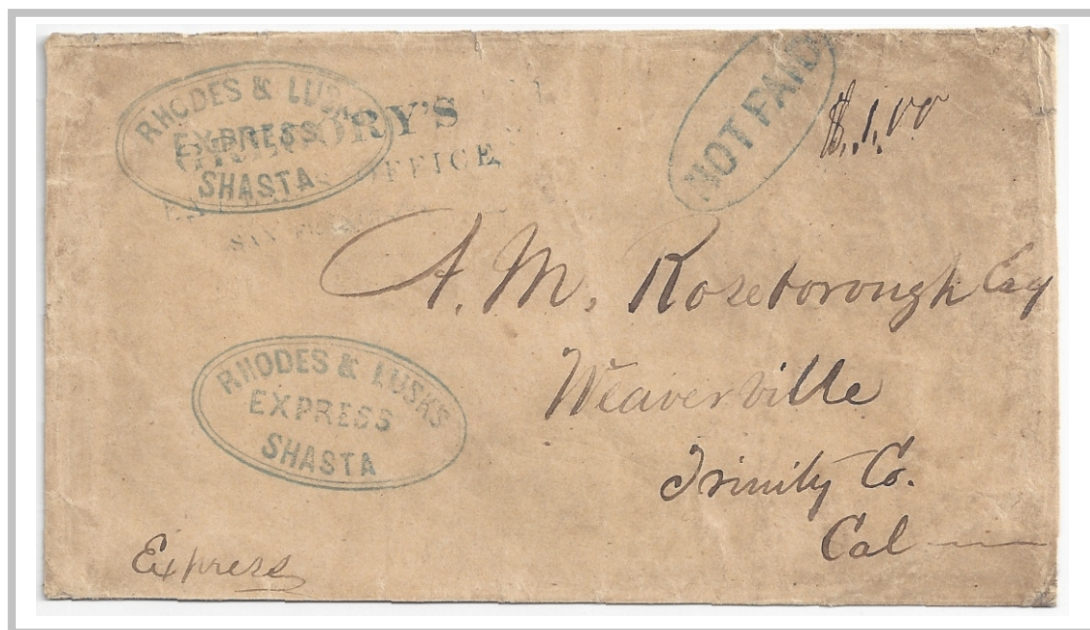 RHODES & LUSKS
EXPRESS
SHASTA
GREGORY'S
OFFICE,
NOT PAID
$1.00
A. M. Roseborough Esq
Weaverville
Trinity Co.
Cal
RHODES & LUSKS
EXPRESS
SHASTA
Express